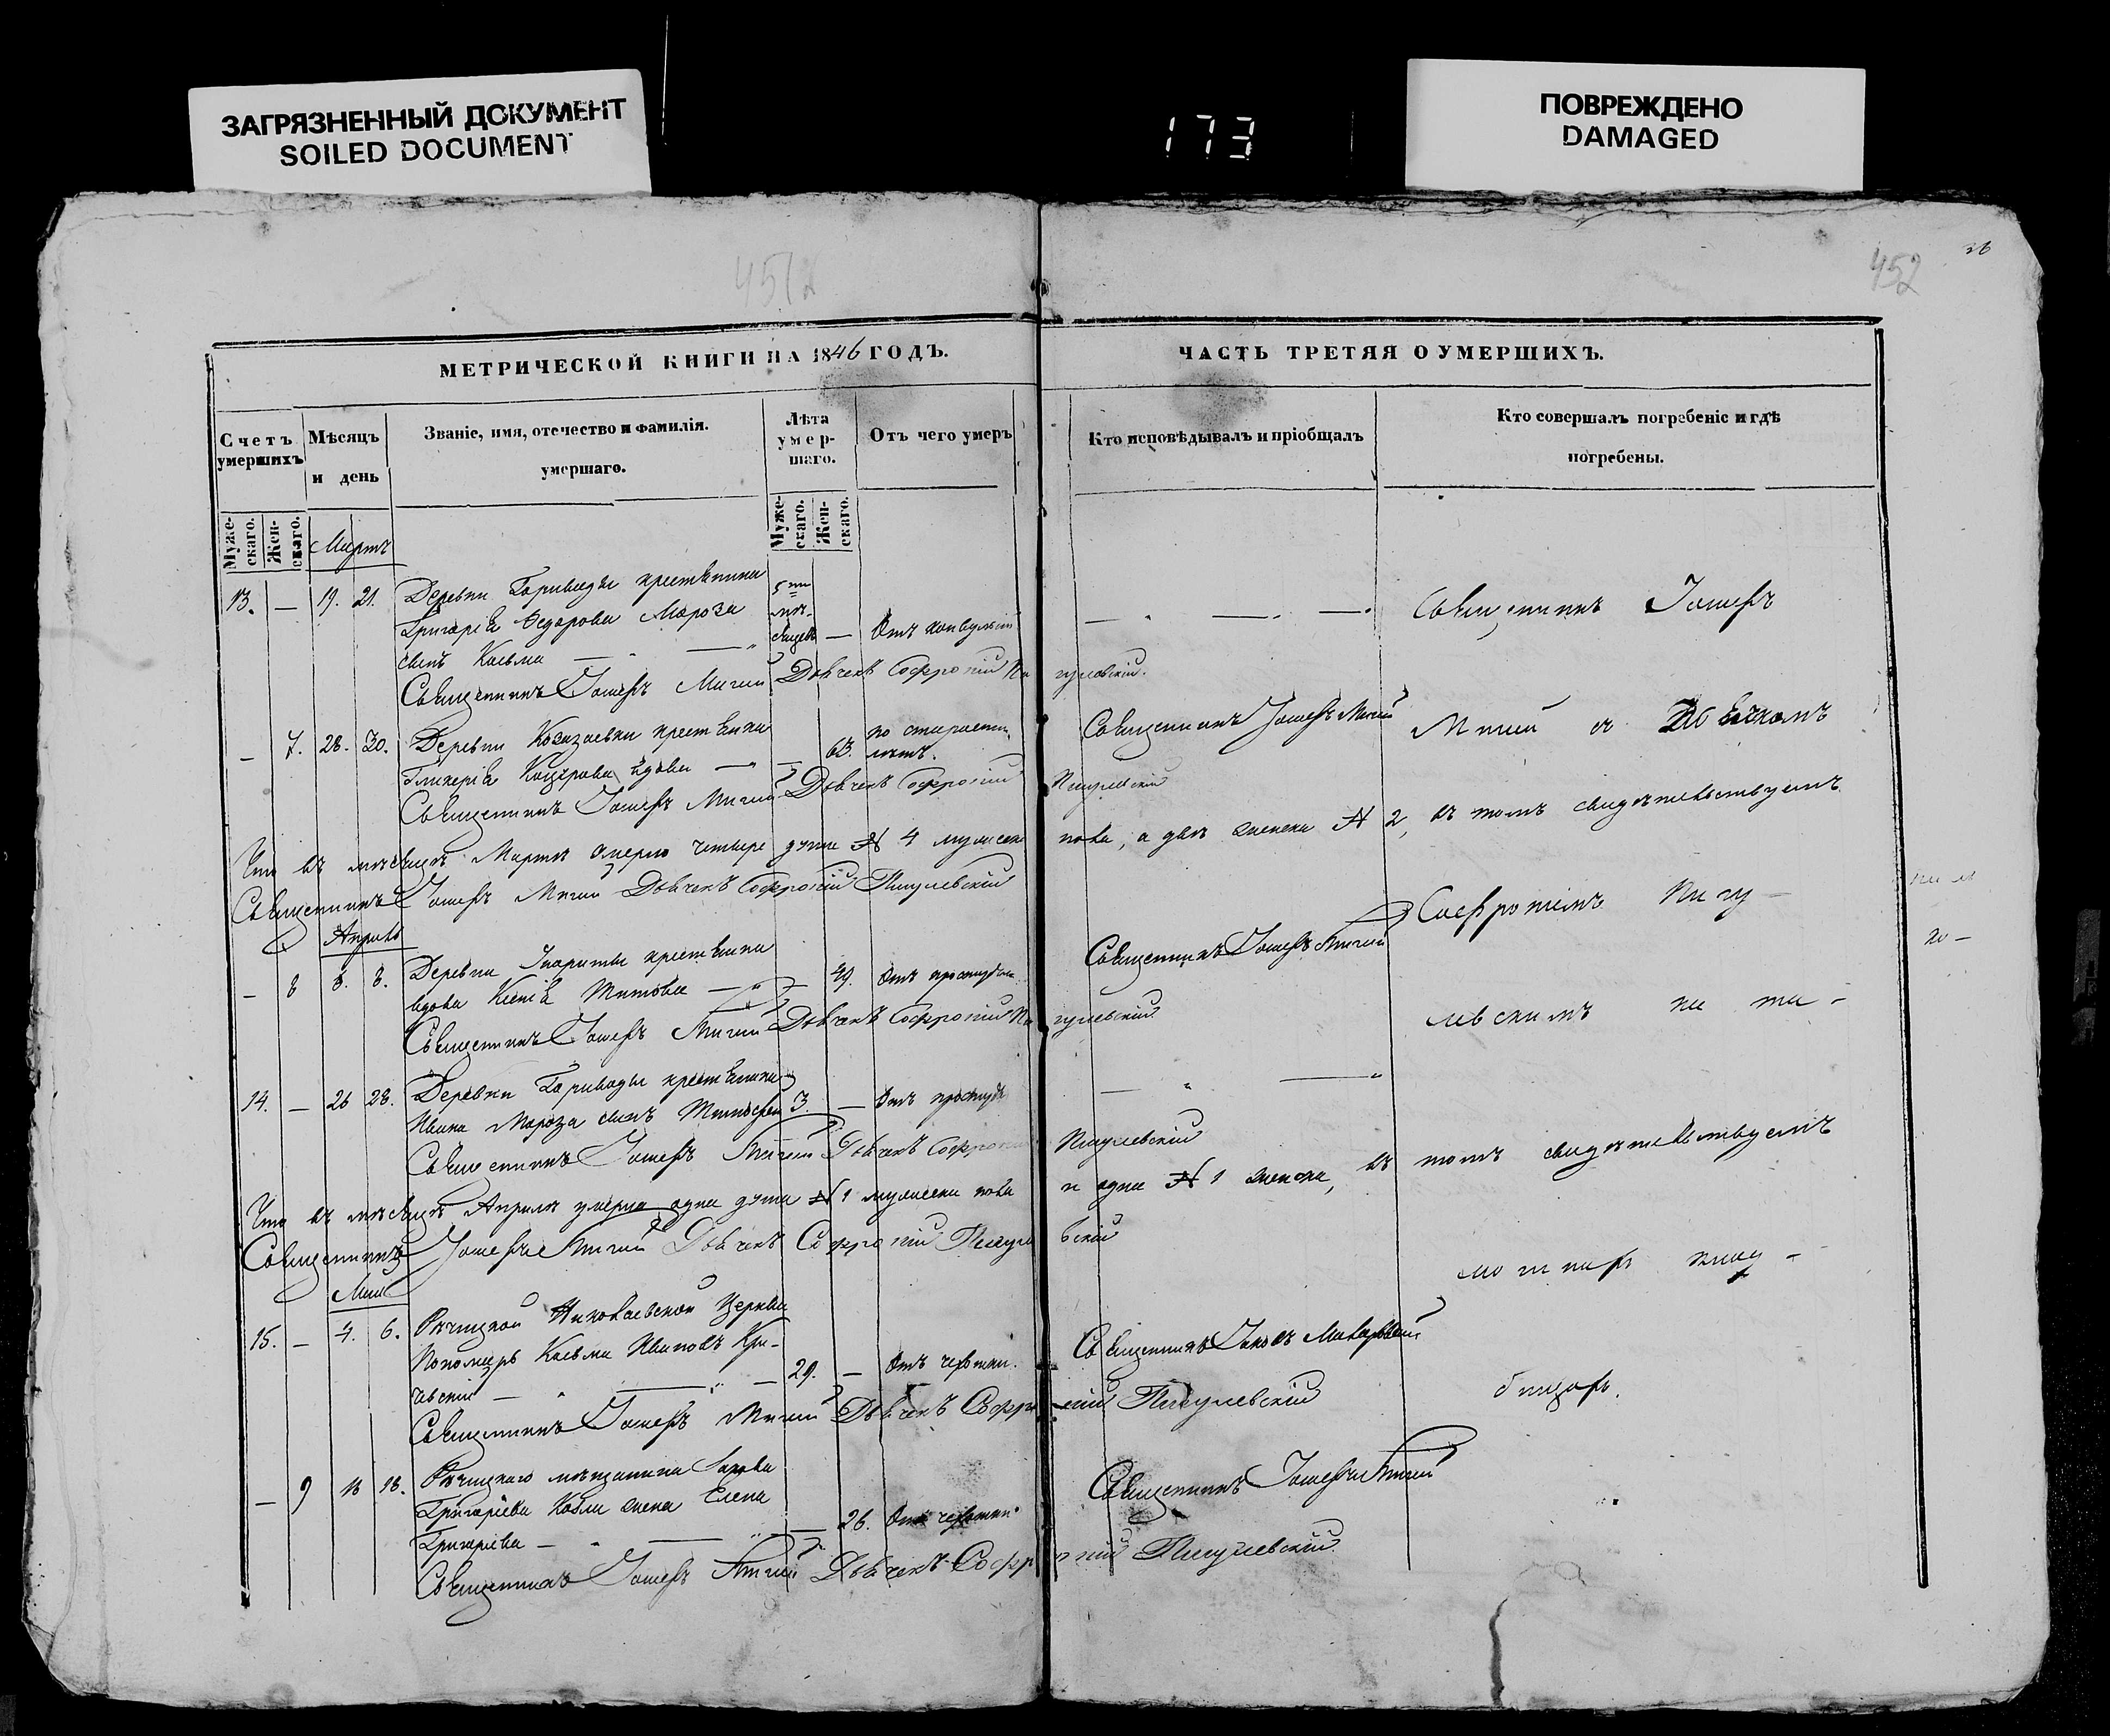 ЗАГРЯЗНЕННЫЙ ДОКУМЕНТ
SOILED DOCUMENT
173
ПОВРЕЖДЕНО
DAMAGED
452
МЕТРИЧЕСКОЙ КНИГИ НА 1846 ГОДЪ.
Счетъ умершихъ
Мѣсяцъ и день
Званіе, имя, отечество и фамилія.
умершаго.
Лѣта умер-
шаго.
Отъ чего умеръ
Муже-
скаго.
Жен-
скаго.
Муже-
скаго.
Жен-
скаго.
Мартъ
13. — 19. 21. Деревни крестьянина
Григорія Федорова Мороза 5ти мѣ-
сынъ Косьма — сяцевъ — Отъ конвульсій
Священникъ Іосифъ Мигай Дьячекъ Софроній Пигулевскій.
— 7. 28. 30. Деревни крестьянка
Гликерія вдова — 63. по старости лѣтъ.
Священникъ Іосифъ Мигай Дьячекъ Софроній Пигулевскій
Что въ мѣсяцѣ Мартѣ умерло четыре души № 4 мужеска пола, а двѣ женска № 2, въ томъ свидѣтельствуемъ
Священникъ Іосифъ Мигай Дьячекъ Софроній Пигулевскій
Апрѣль
— 8 8. крестьянка
вдова Ксенія Титова — 49. Отъ простуды
Священникъ Іосифъ Мигай Дьячекъ Софроній Пигулевскій
14. — 26 28. Деревни крестьянина
Ивана Мороза сынъ Тимофей 3. — Отъ простуды
Священникъ Іосифъ Мигай Дьячекъ Пигулевскій
Что въ мѣсяцѣ Апрѣлѣ умерла одна душа № 1 мужеска пола и одна № 1 женска, въ томъ свидѣтельствуемъ
Священникъ Іосифъ Мигай Дьячекъ Софроній Пигулевскій
Май
15. — 4. 6. Рѣчицкой Николаевской Церкви
Пономарь Косьма Ивановъ
29. — Отъ чахотки.
Священникъ Іосифъ Мигай Дьячекъ Софроній Пигулевскій
— 9 18. Рѣчицкаго мѣщанина
Григорьева жена Елена
Григорьева — 26. Отъ чахотки
Священникъ Іосифъ Мигай Дьячекъ Софроній Пигулевскій
ЧАСТЬ ТРЕТЯЯ О УМЕРШИХЪ.
Кто исповѣдывалъ и пріобщалъ
Кто совершалъ погребеніе и гдѣ
погребены.
Священникъ Іосифъ
Священникъ Іосифъ Мигай
Мигай съ Дьячкомъ
Софроніемъ Пигу-
Священникъ Іосифъ Мигай
левскимъ на
клад-
Священникъ
бищѣ.
Священникъ Іосифъ Мигай